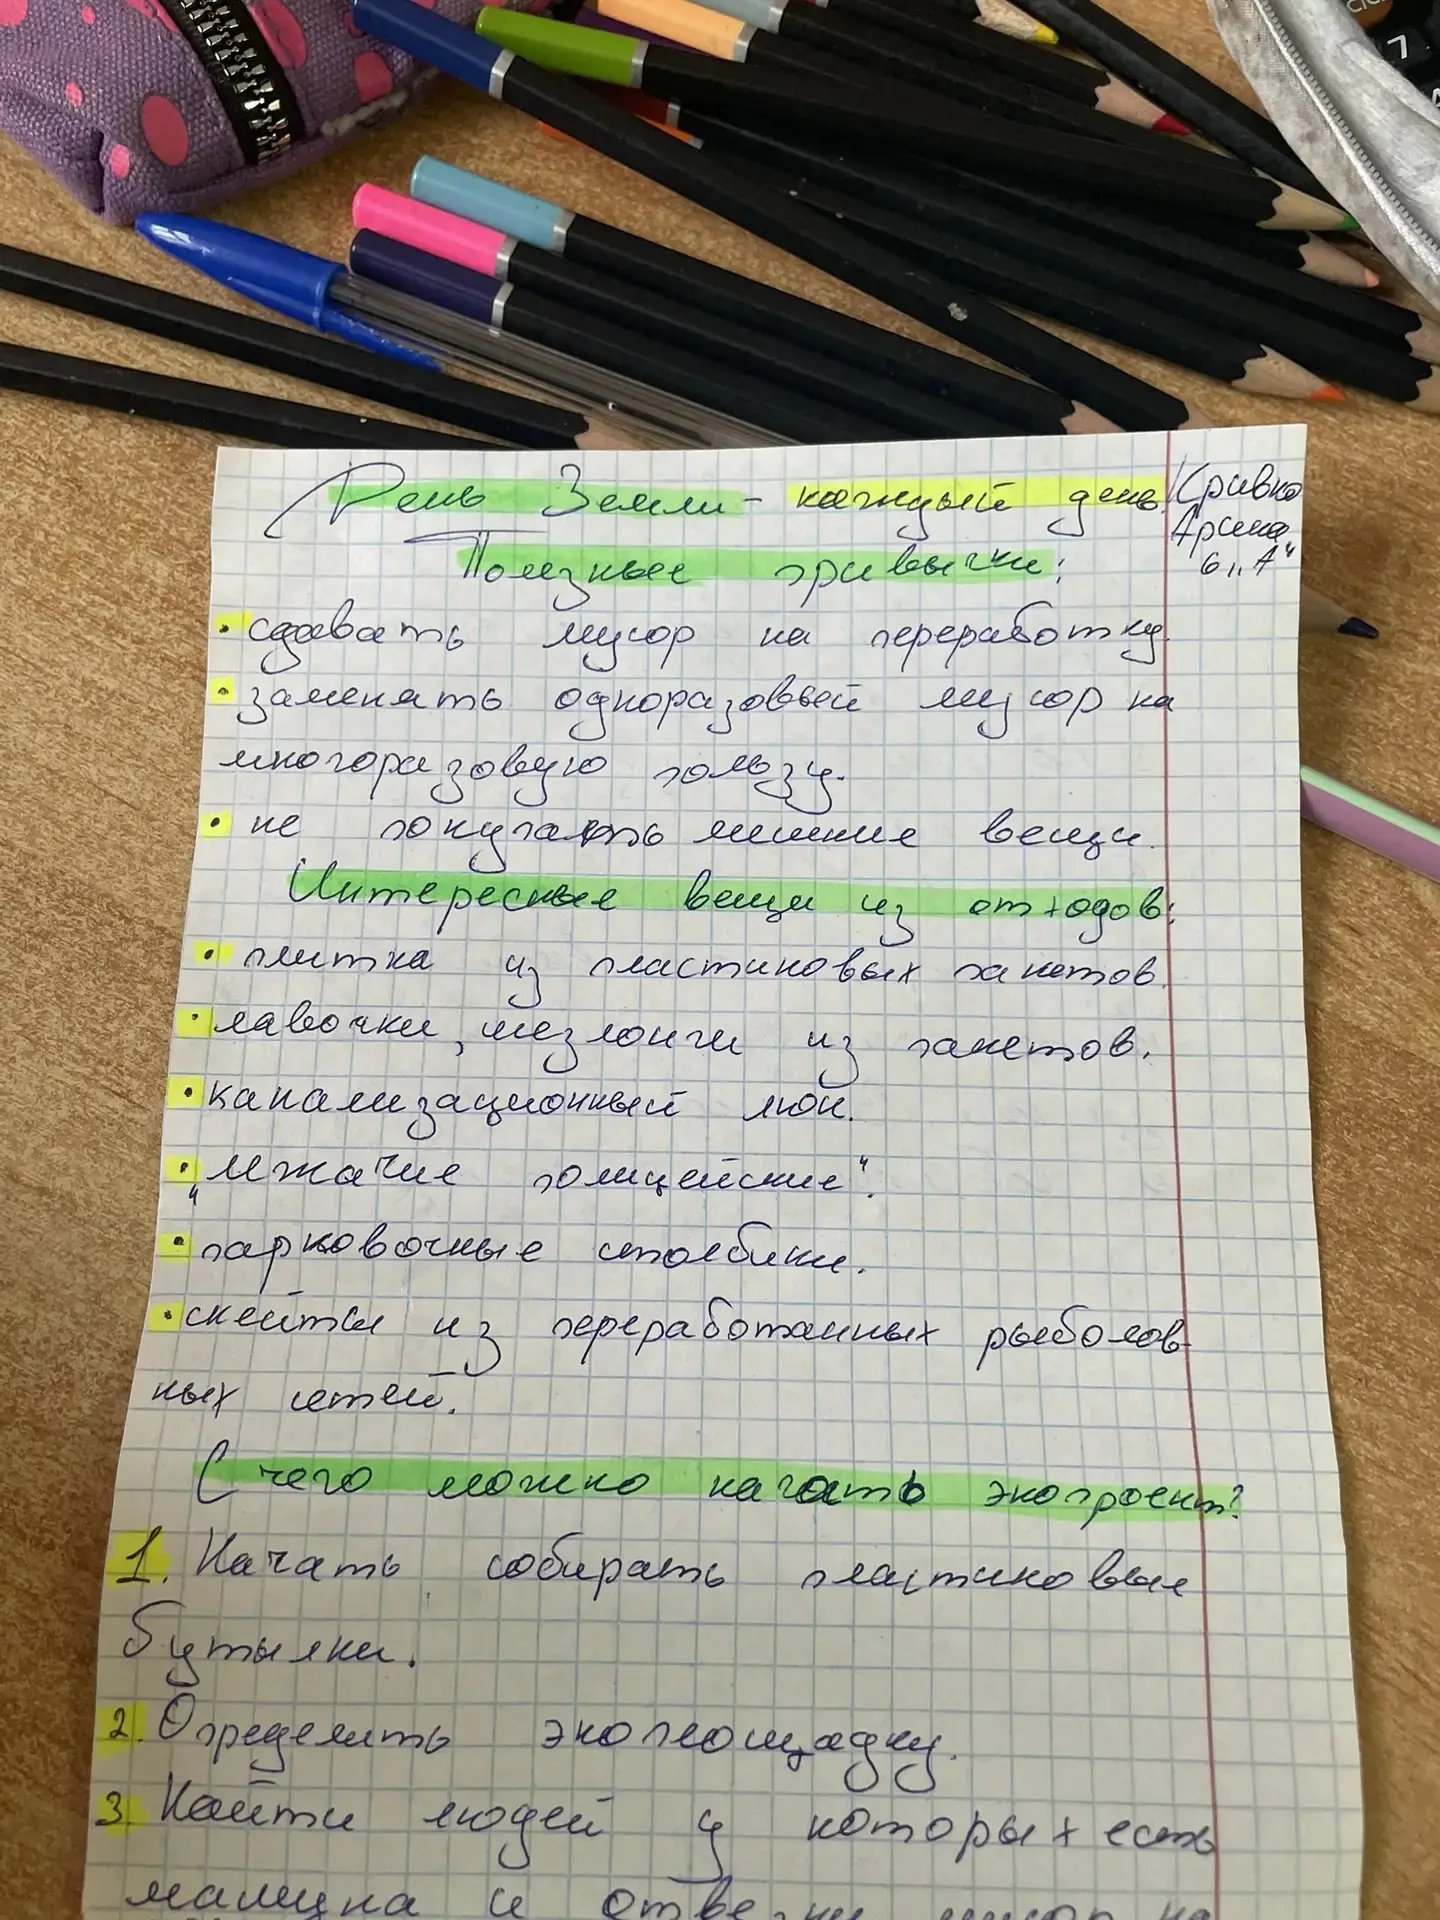 День Земли - каждый день!
Кривко
Арина
6 „А"
Полезные привычки:
• сдавать мусор на переработку.
• заменять одноразовый мусор на
многоразовую пользу.
• не покупать лишние вещи.
Интересные вещи из отходов:
• плитка из пластиковых пакетов.
• лавочки, шезлонги из пакетов.
• канализационный люк.
• „лежачие полицейские".
• парковочные столбики.
• скейты из переработанных рыболов-
ных сетей.
С чего можно начать экопроект?
1. Начать собирать пластиковые
бутылки.
2. Определить экоплощадку.
3. Найти людей у которых есть
машина и мусор на
7